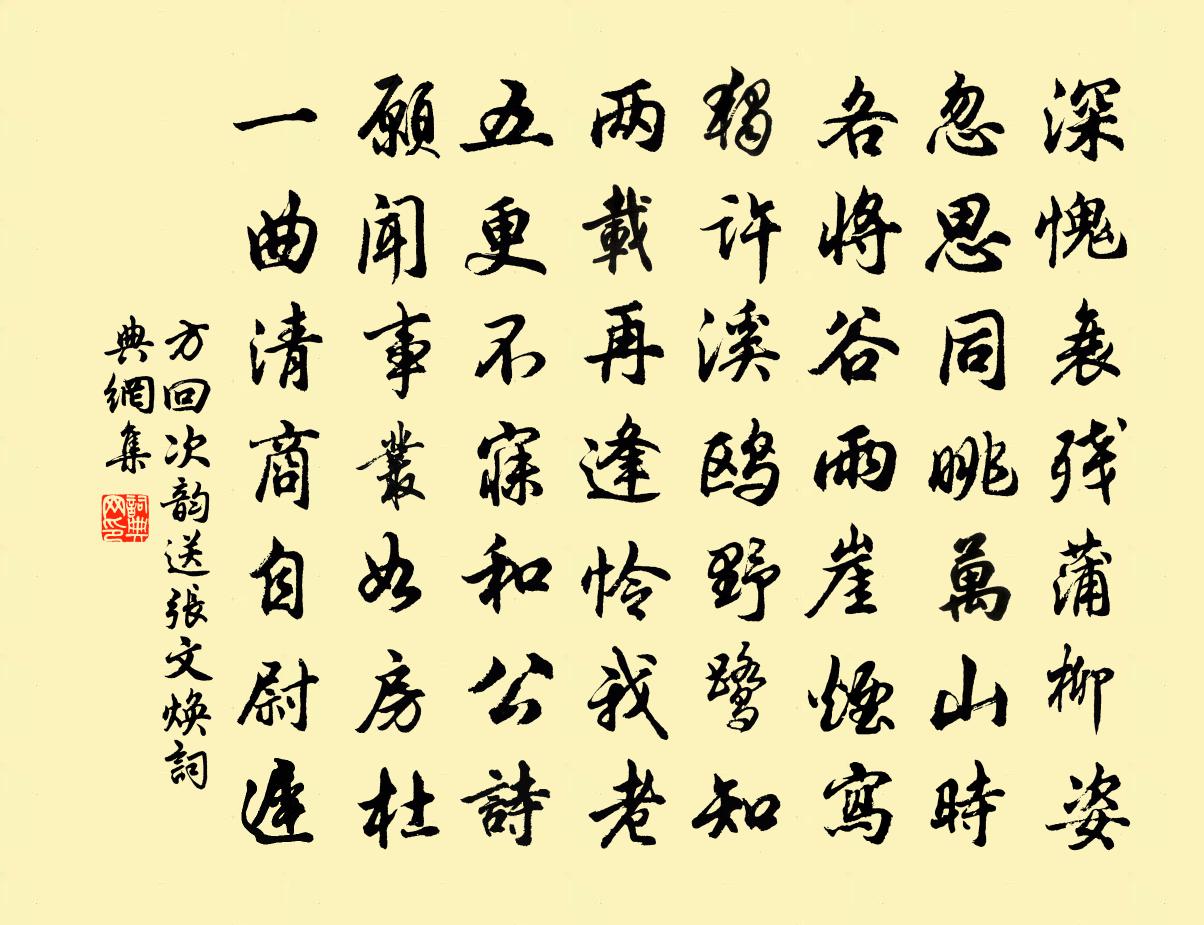 深愧衰残蒲柳姿
忽思同眺萬山時
各将谷雨崖煙寫
獨許溪鸥野鹭知
两載再逢怜我老
五更不寐和公詩
願闻事業如房杜
一曲清商自尉遲
方回次韵送張文焕詞
典網集
詞典网印